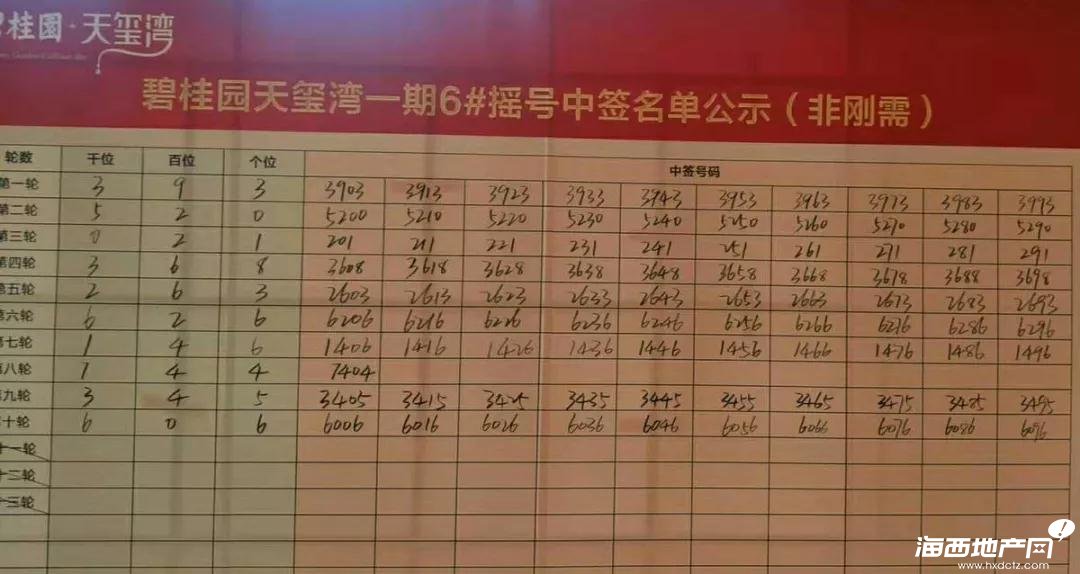 碧桂園·天玺湾
碧桂园天玺湾一期6#摇号中签名单公示（非刚需）
轮数 千位 百位 个位 中签号码
第一轮 3 9 3 3903 3913 3923 3933 3943 3953 3963 3973 3983 3993
第二轮 5 2 0 5200 5210 5220 5230 5240 5250 5260 5270 5280 5290
第三轮 0 2 1 201 211 221 231 241 251 261 271 281 291
第四轮 3 6 8 3608 3618 3628 3638 3648 3658 3668 3678 3688 3698
第五轮 2 6 3 2603 2613 2623 2633 2643 2653 2663 2673 2683 2693
第六轮 6 2 6 6206 6216 6226 6236 6246 6256 6266 6276 6286 6296
第七轮 1 4 6 1406 1416 1426 1436 1446 1456 1466 1476 1486 1496
第八轮 7 4 4 7404
第九轮 3 4 5 3405 3415 3425 3435 3445 3455 3465 3475 3485 3495
第十轮 6 0 6 6006 6016 6026 6036 6046 6056 6066 6076 6086 6096
十一轮
十二轮
十三轮
海西地产网
www.hxdctz.com